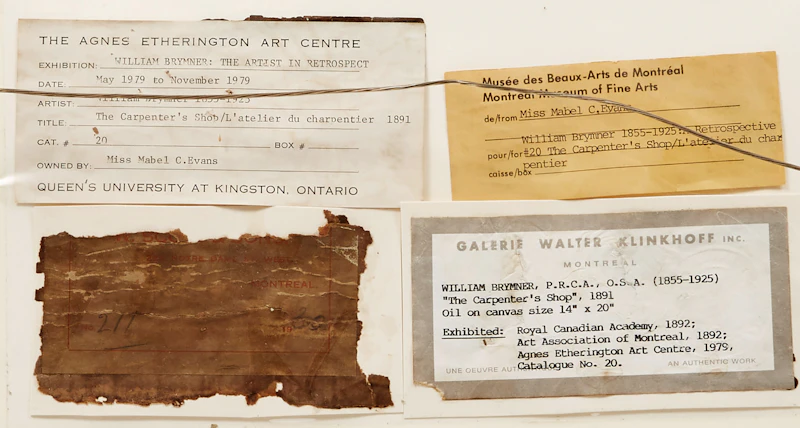 THE AGNES ETHERINGTON ART CENTRE
EXHIBITION: WILLIAM BRYMNER: THE ARTIST IN RETROSPECT
DATE: May 1979 to November 1979
ARTIST: William Brymner 1855-1925
TITLE: The Carpenter's Shop/L'atelier du charpentier 1891
CAT. # 20 BOX #
OWNED BY: Miss Mabel C.Evans
QUEEN'S UNIVERSITY AT KINGSTON, ONTARIO
Musée des Beaux-Arts de Montréal
Montreal Museum of Fine Arts
de/from Miss Mabel C.Evans
William Brymner 1855-1925: Retrospective
pour/for #20 The Carpenter's Shop/L'atelier du char
pentier
caisse/box
MONTREAL
GALERIE WALTER KLINKHOFF INC.
MONTREAL
WILLIAM BRYMNER, P.R.C.A., O.S.A. (1855-1925)
"The Carpenter's Shop", 1891
Oil on canvas size 14" x 20"
Exhibited: Royal Canadian Academy, 1892;
Art Association of Montreal, 1892;
Agnes Etherington Art Centre, 1979,
Catalogue No. 20.
UNE OEUVRE AN AUTHENTIC WORK